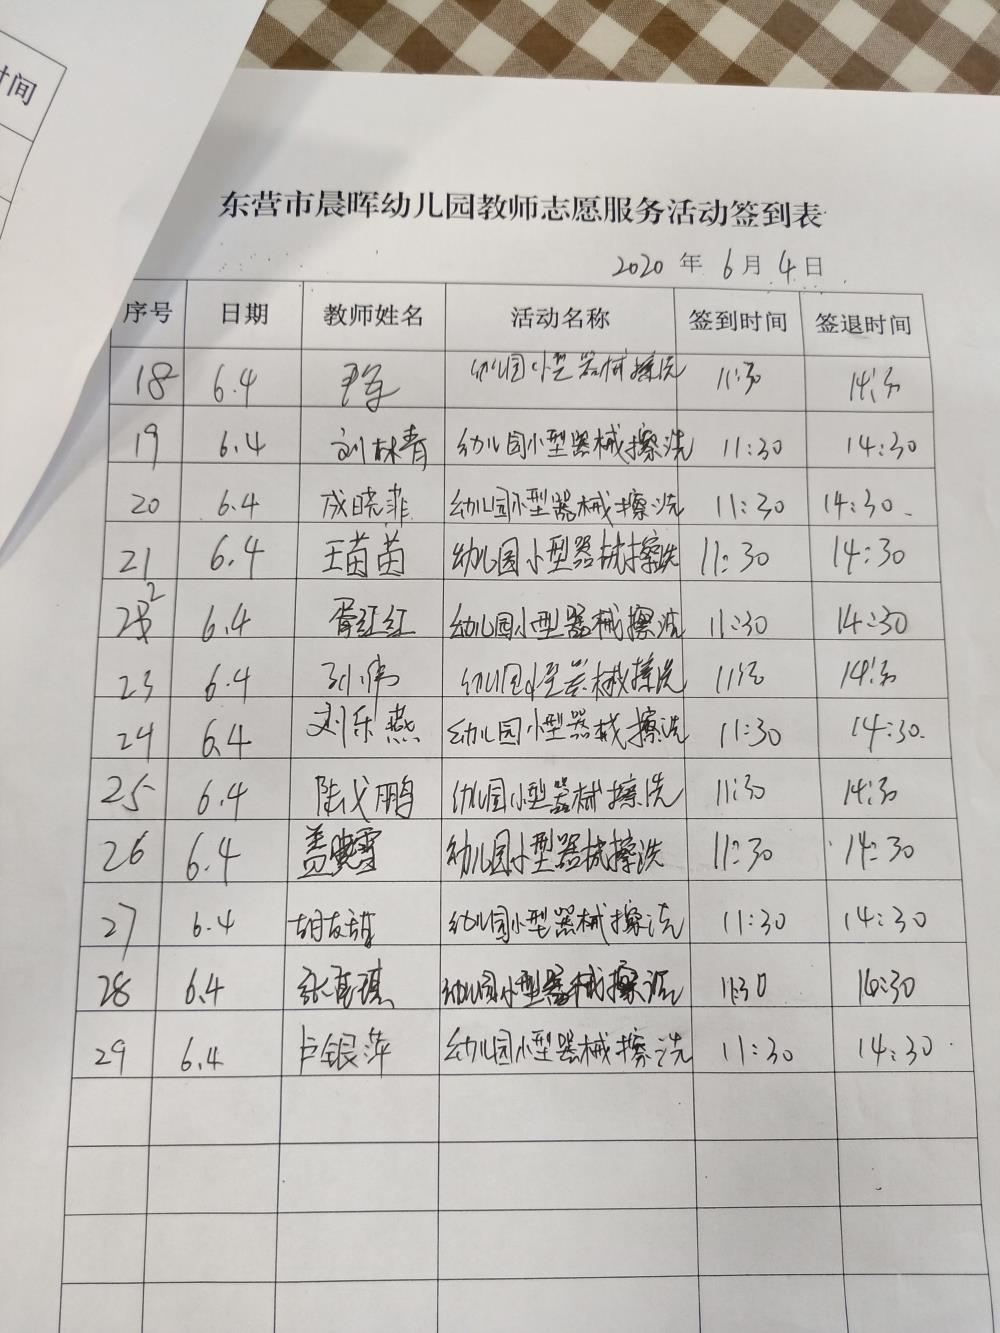 时间
东营市晨晖幼儿园教师志愿服务活动签到表
2020 年 6 月 4 日
序号 日期 教师姓名 活动名称 签到时间 签退时间
18 6.4 幼儿园小型器械擦洗 11:30 14:30
19 6.4 刘林青 幼儿园小型器械擦洗 11:30 14:30
20 6.4 成晓菲 幼儿园小型器械擦洗 11:30 14:30
21 6.4 王苗苗 幼儿园小型器械擦洗 11:30 14:30
22 6.4 胥红红 幼儿园小型器械擦洗 11:30 14:30
23 6.4 孙伟 幼儿园小型器械擦洗 11:30 14:30
24 6.4 刘乐燕 幼儿园小型器械擦洗 11:30 14:30
25 6.4 陆戈鹏 幼儿园小型器械擦洗 11:30 14:30
26 6.4 幼儿园小型器械擦洗 11:30 14:30
27 6.4 胡甜甜 幼儿园小型器械擦洗 11:30 14:30
28 6.4 幼儿园小型器械擦洗 11:30 14:30
29 6.4 卢银萍 幼儿园小型器械擦洗 11:30 14:30